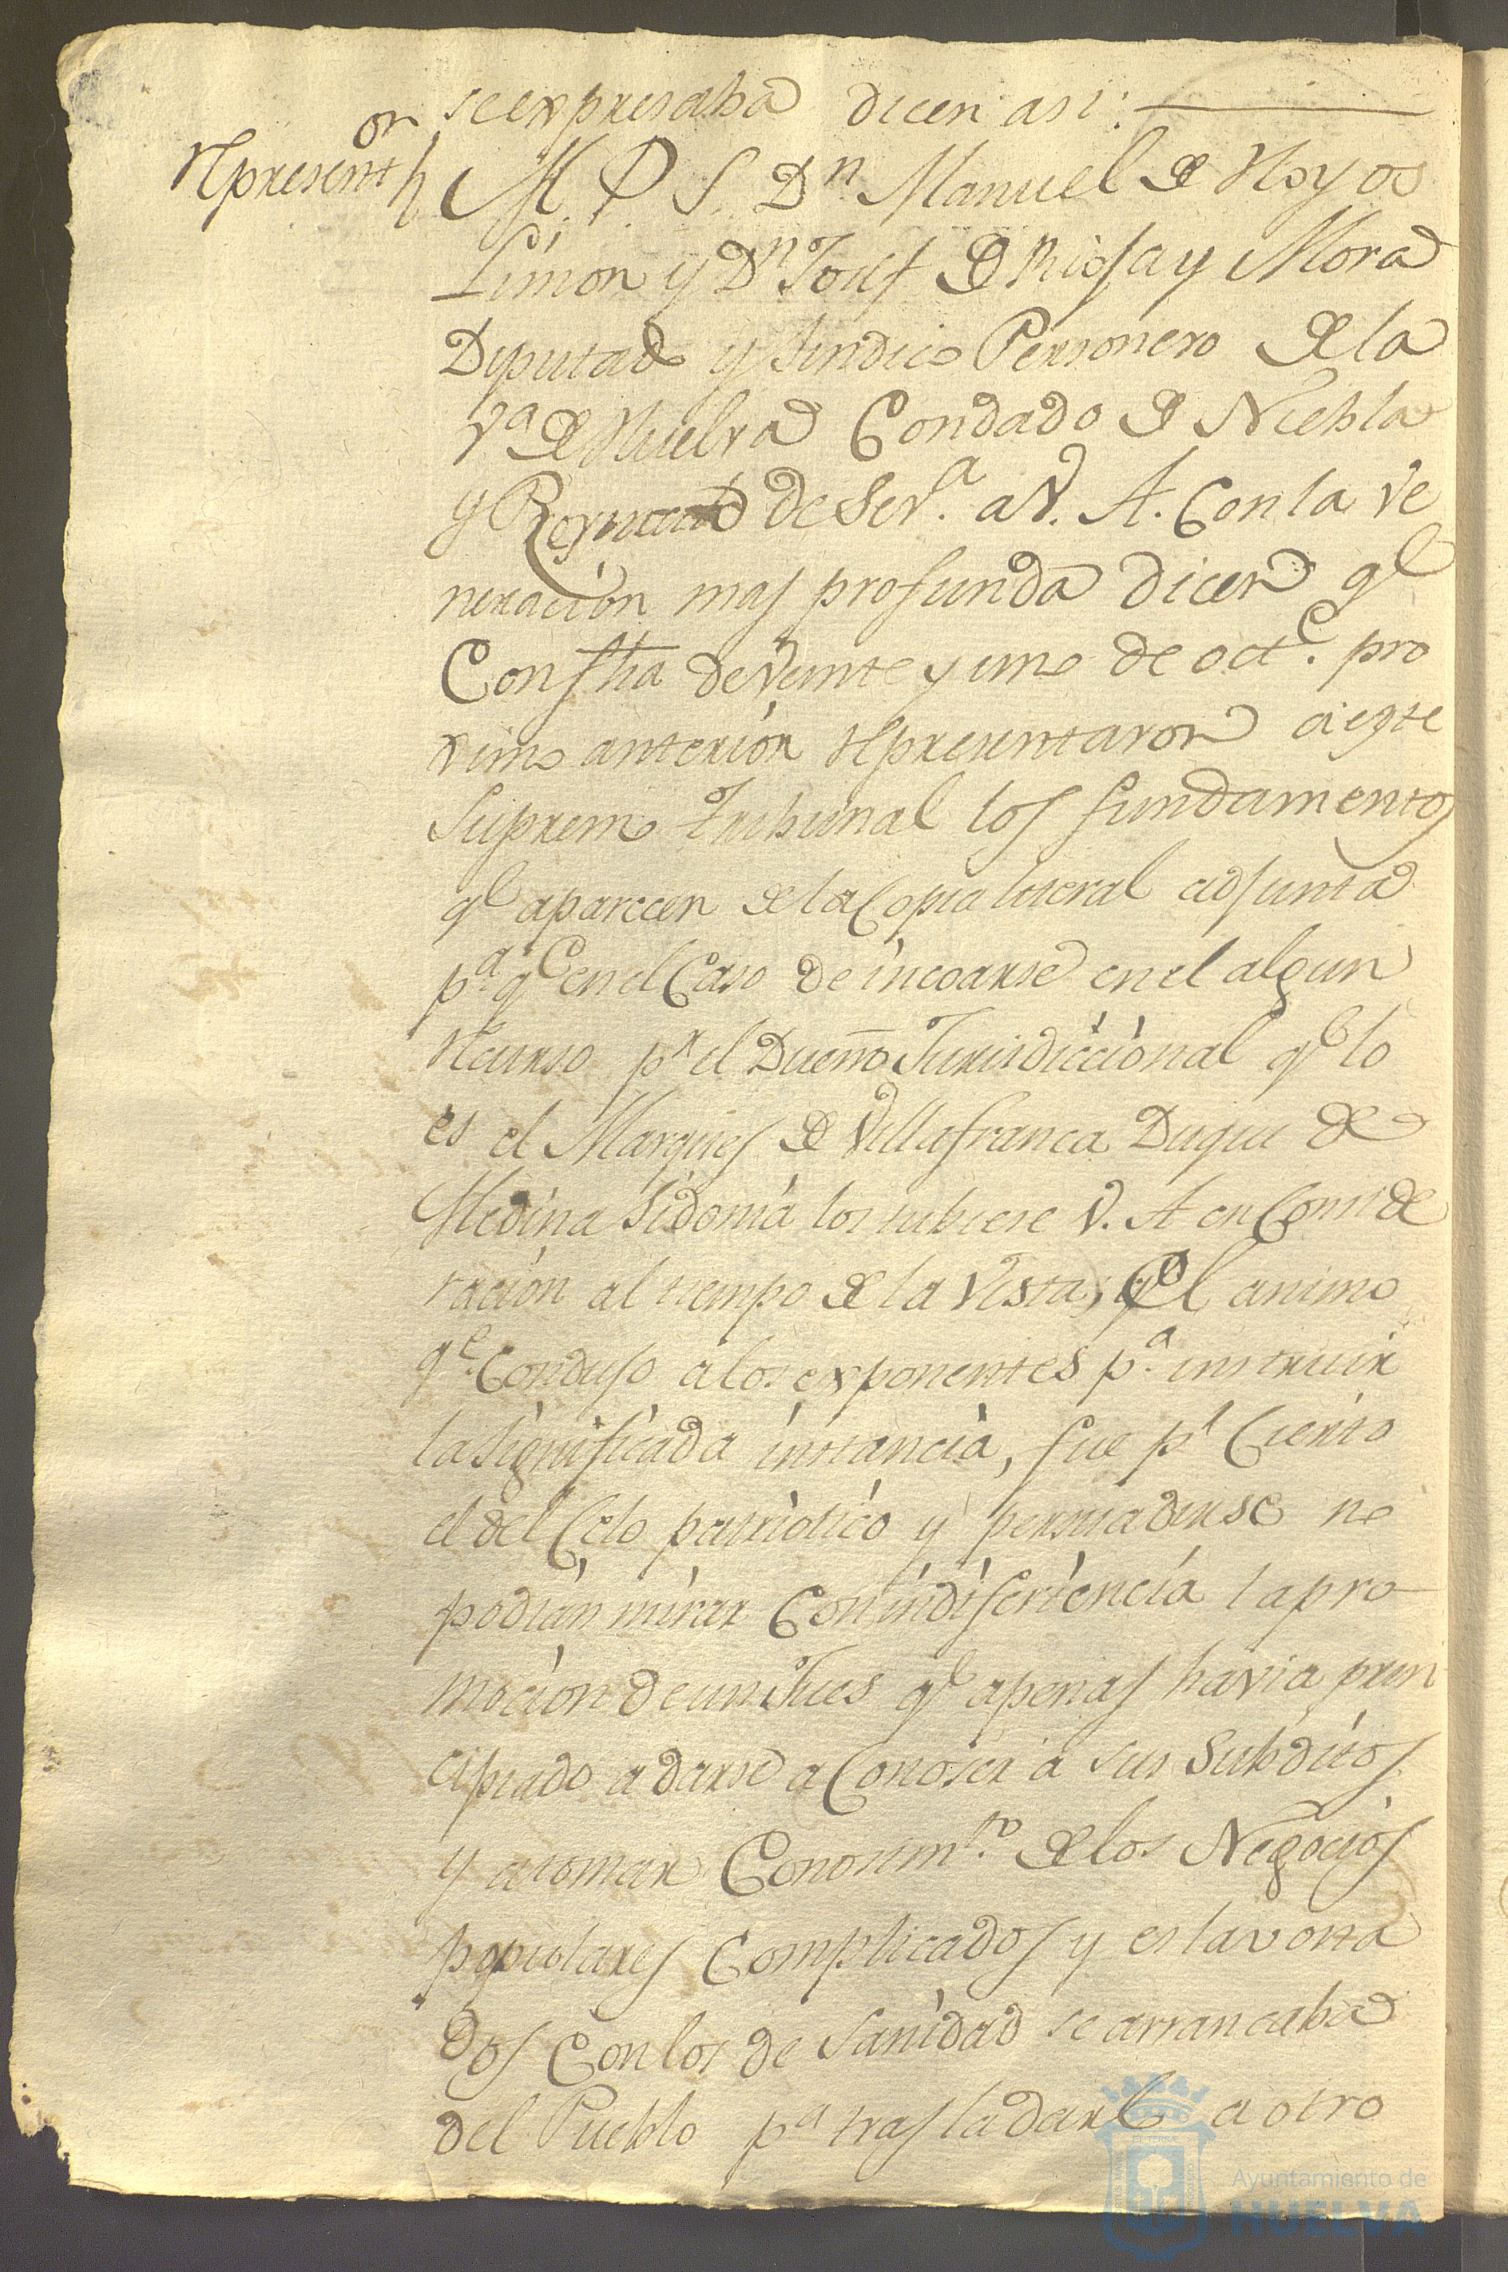 se expresaba dicen asi:
Represent.on
M. P. S. Dn. Manuel de Hoyos
Limon y Dn. Josef de Rioja y Mora
Diputado y Sindico Personero de la
Va. de Huelva Condado de Niebla
y Reynado de Seva. a V. A. Con la ve
neracion mas profunda dicen qe.
Con fha de Veinte y uno de octe. pro
ximo anterior representaron a este
Supremo Tribunal los fundamentos
qe. aparecen de la Copia literal adjunta
pa. qe. en el Caso de incoarse en el algun
recurso pr. el Dueño Jurisdiccional qe. lo
es el Marques de Villafranca Duque de
Medina Sidonia los tubiese V. A. en Conside
racion al tiempo de la Vista, El animo
qe. Condujo a los exponentes pa. instruir
la significada instancia, fue pr. Cierto
el del Celo patriotico y persuadirse no
podian mirar Con indiferiencia la pro
mocion de un Jues qe. apenas havia prin
cipiado a darse a Conoser a sus Subditos
y a tomar Conosimto. de los Negocios
populares Complicados y eslavona
dos Con los de Sanidad se arrancaba
del Pueblo pa. trasladarle a otro
Ayuntamiento de
HUELVA